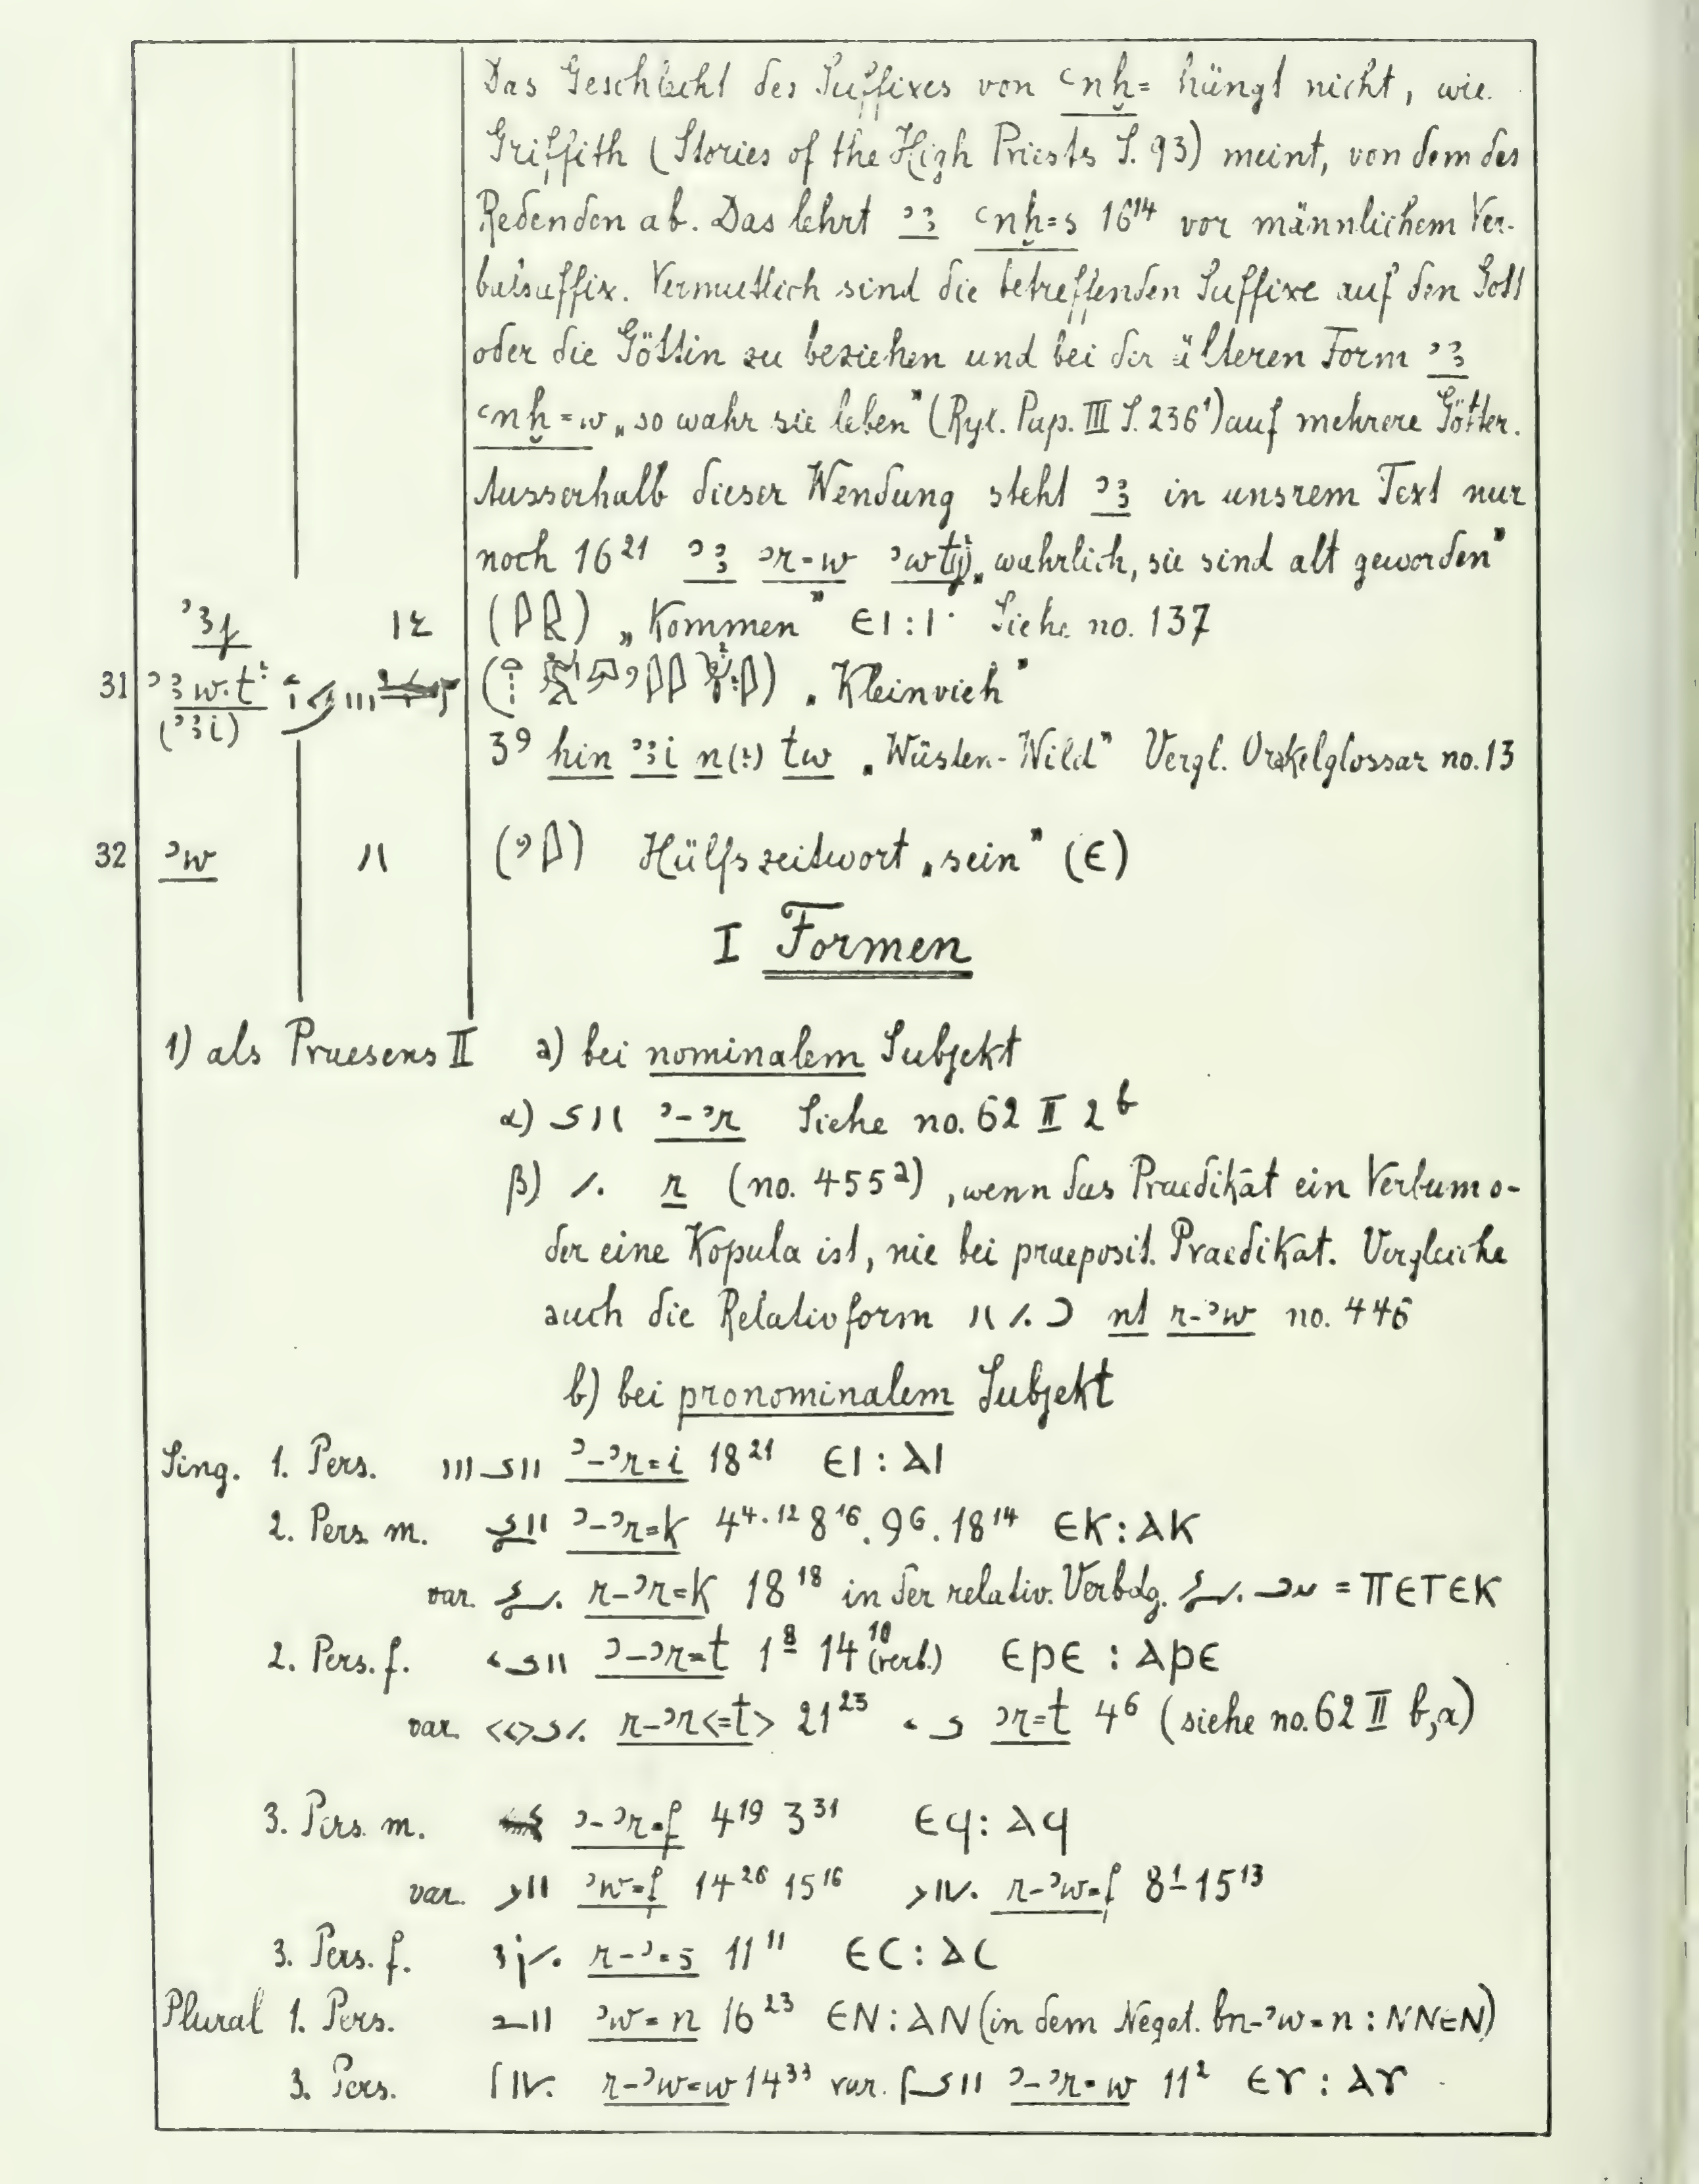 Das Geschlecht des Suffixes von ꜥnḫ= hängt nicht, wie
Griffith (Stories of the High Priests S. 93) meint, von dem des
Redenden ab. Das lehrt ꜣꜣ ꜥnḫ=s 16¹⁴ vor männlichem Ver-
balsuffix. Vermutlich sind die betreffenden Suffixe auf den Gott
oder die Göttin zu beziehen und bei der älteren Form ꜣꜣ
ꜥnḫ=w „so wahr sie leben" (Ryl. Pap. III S. 236¹) auf mehrere Götter.
Ausserhalb dieser Wendung steht ꜣꜣ in unsrem Text nur
noch 16²¹ „wahrlich, sie sind alt geworden"
„Kommen" ⲉⲓ : ⲓ· Siehe no. 137
31 „Kleinvieh"
3⁹ hin n(?) tw „Wüsten-Wild" Vergl. Orakelglossar no. 13
32 ʾw Hülfszeitwort „sein" (ⲉ)
I Formen
1) als Praesens II a) bei nominalem Subjekt
α) ʾ-ʾr Siehe no. 62 II 2ᵇ
β) r (no. 455ᵃ), wenn das Praedikat ein Verbum o-
der eine Kopula ist, nie bei praeposit. Praedikat. Vergleiche
auch die Relativform nt r-ʾw no. 446
b) bei pronominalem Subjekt
Sing. 1. Pers. ʾ-ʾr=i 18²¹ ⲉⲓ : ⲁⲓ
2. Pers m. ʾ-ʾr=k 4⁴·¹² 8¹⁶. 9⁶. 18¹⁴ ⲉⲕ : ⲁⲕ
var. r-ʾr=k 18¹⁸ in der relativ. Verbdg. = ⲡⲉⲧⲉⲕ
2. Pers. f. ʾ-ʾr=t 1⁸ 14¹⁰ (verb.) ⲉⲣⲉ : ⲁⲣⲉ
var. r-ʾr<=t> 21²³ ʾr=t 4⁶ (siehe no. 62 II b,α)
3. Pers. m. ʾ-ʾr=f 4¹⁹ 3³¹ ⲉϥ : ⲁϥ
var. ʾw=f 14²⁶ 15¹⁶ r-ʾw=f 8¹ 15¹³
3. Pers. f. r-ʾ=s 11¹¹ ⲉⲥ : ⲁⲥ
Plural 1. Pers. ʾw=n 16²³ ⲉⲛ : ⲁⲛ (in dem Negat. bn-ʾw=n : ⲛⲛⲉⲛ)
3. Pers. r-ʾw=w 14³³ var. ʾ-ʾr=w 11² ⲉⲩ : ⲁⲩ